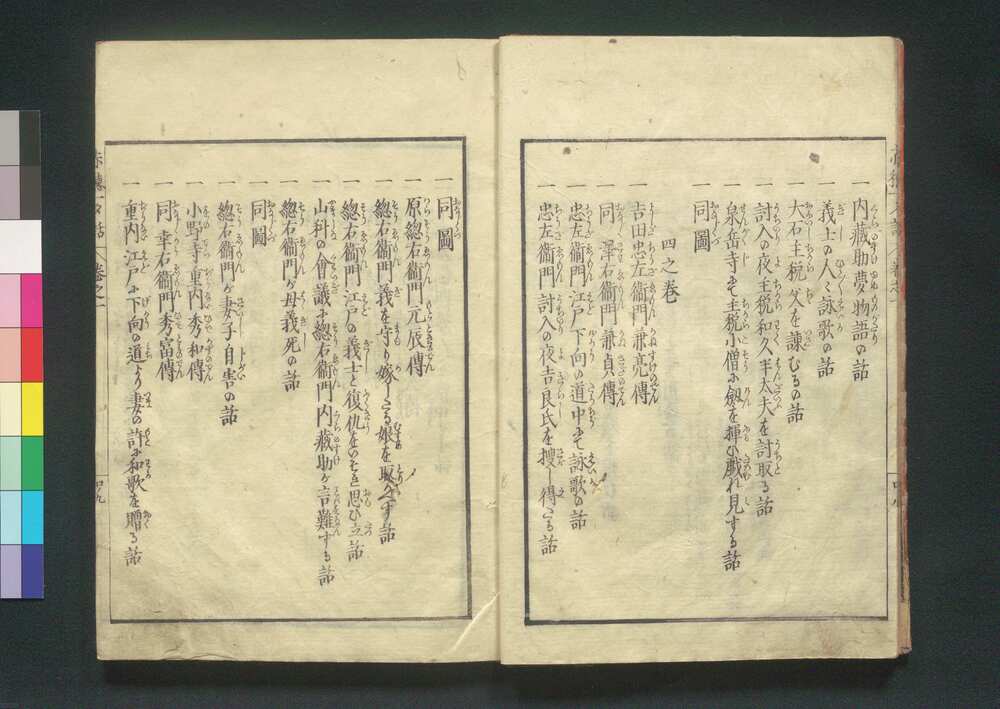 一 内蔵助夢物語の話
一 義士の人々詠歌の話
一 大石主税父を諫むるの話
一 討入の夜主税和久半太夫を討取る話
一 泉岳寺にて主税小僧に劔を揮ひ戯れ見する話
一 同圖
四之巻
一 吉田忠左衞門兼亮傳
一 同 澤右衞門兼貞傳
一 忠左衞門江戸下向の道中にて詠歌の話
一 忠左衞門討入の夜吉良氏を搜し得たる話
一 同圖
一 原總右衞門元辰傳
一 總右衞門義を守り嫁したる娘を取戻す話
一 總右衞門江戸の義士と復仇をいそぎ思ひ立話
一 山科の會議に總右衞門内藏助が言難する話
一 總右衞門が母義死の話
一 同圖
一 總右衞門が妻子自害の話
一 小野寺重内秀和傳
一 同 幸右衞門秀富傳
一 重内江戸に下向の道より妻の許に和歌を贈る話
四ノ九